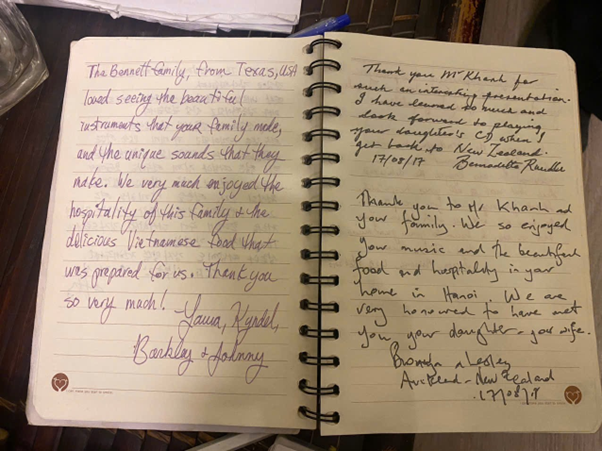 The Bennett family, from Texas, USA
loved seeing the beautiful
instruments that your family made,
and the unique sounds that they
make. We very much enjoyed the
hospitality of this family & the
delicious Vietnamese food that
was prepared for us. Thank you
so very much!
Laura, Kyndel,
Barkley & Johnny
Thank you Mr Khanh for
such an interesting presentation.
I have learned so much and
look forward to playing
your daughter's CD when I
get back to New Zealand.
17/08/17
Thank you to Mr Khanh and
your family. We so enjoyed
your music and the beautiful
food and hospitality in your
home in Hanoi. We are
very honoured to have met
you, your daughter, your wife.
Lesley
Auckland - New Zealand